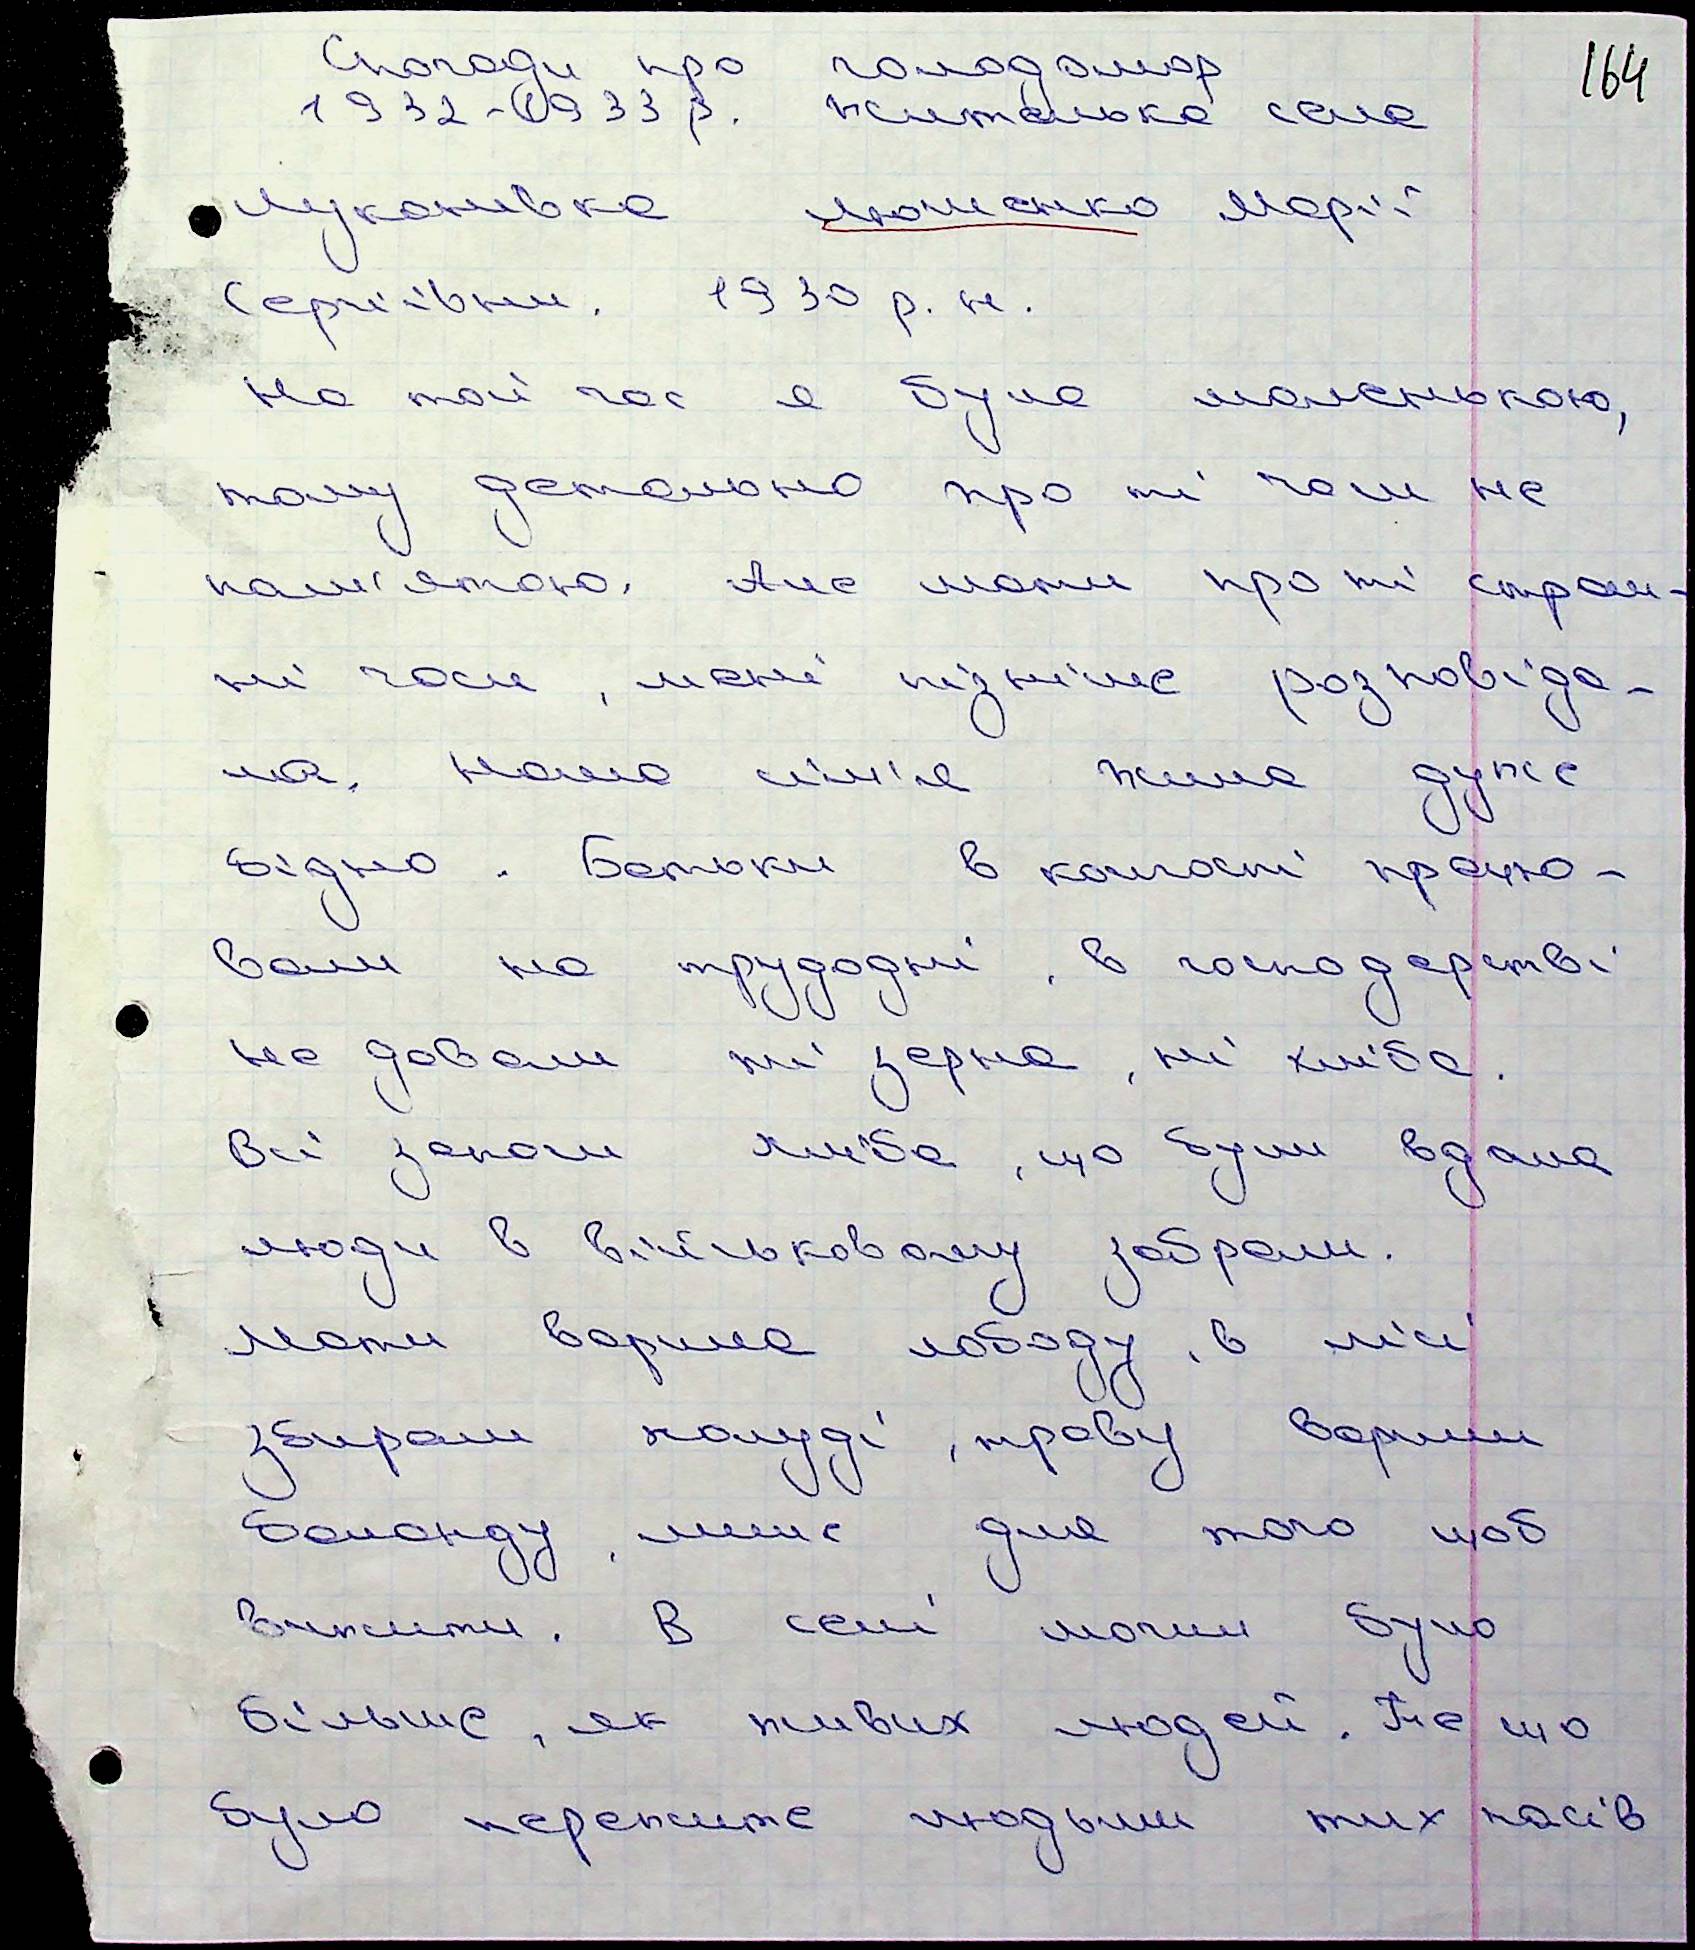 164
Спогади про голодомор
1932-1933 р. жителька села
Луканівка Люшенко Марії
Сергіївни. 1930 р. н.
На той час я була маленькою,
тому детально про ті часи не
пам'ятаю. Але мати про ті страш-
ні часи, мені пізніше розповіда-
ла. Наша сім'я жила дуже
бідно. Батьки в колгоспі працю-
вали на трудодні, в господарстві
не давали ні зерна, ні хліба.
Всі запаси хліба, що були вдома
люди в військовому забрали.
Мати варила лободу, в лісі
збирали жолуді, траву варили
баланду, лише для того щоб
вижити. В селі могил було
більше, як живих людей. Те що
було пережите людьми тих часів